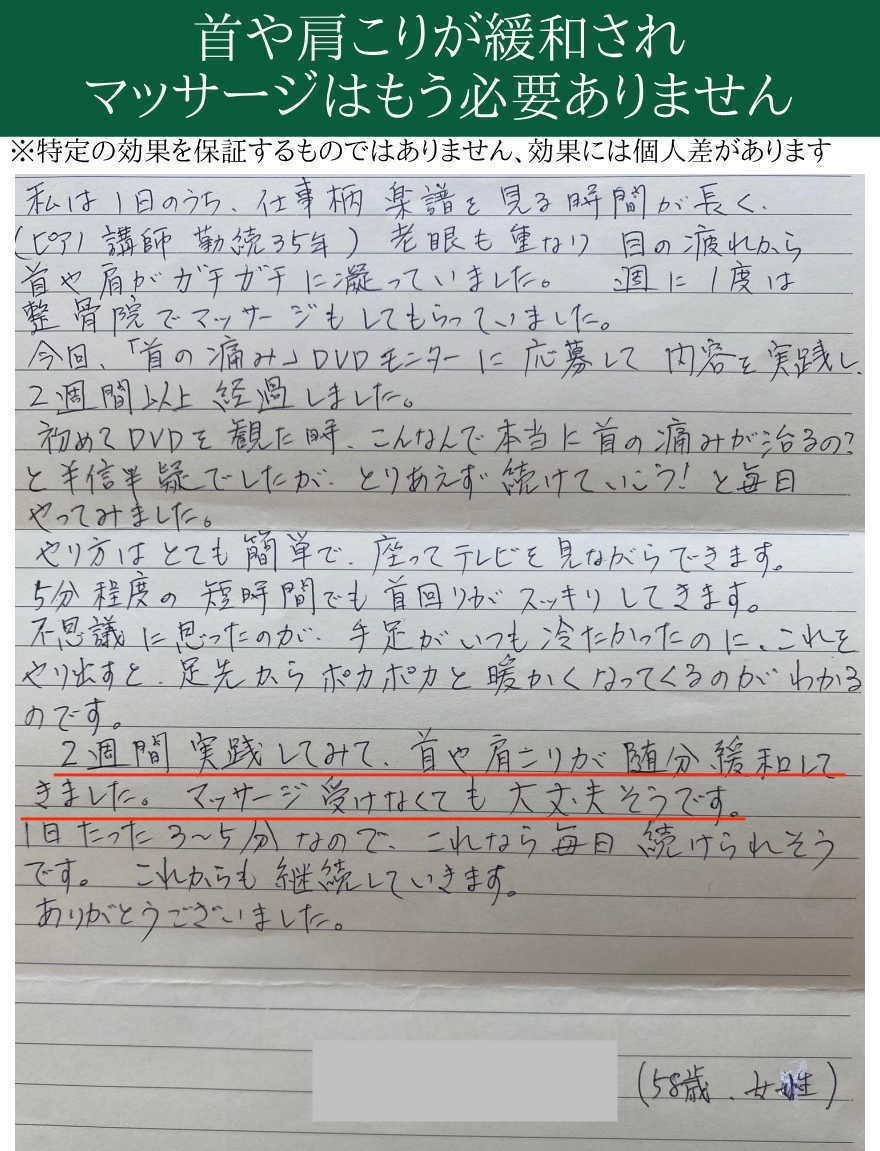 首や肩こりが緩和され
マッサージはもう必要ありません
※特定の効果を保証するものではありません、効果には個人差があります
私は1日のうち、仕事柄 楽譜を見る時間が長く、
(ピアノ講師 勤続35年) 老眼も重なり 目の疲れから
首や肩がガチガチに凝っていました。 週に1度は
整骨院でマッサージもしてもらっていました。
今回、「首の痛み」DVDモニターに応募して 内容を実践し、
2週間以上 経過しました。
初めてDVDを観た時、こんなんで本当に首の痛みが治るの?
と半信半疑でしたが、とりあえず続けていこう!と毎日
やってみました。
やり方はとても簡単で、座ってテレビを見ながらできます。
5分程度の短時間でも首回りがスッキリしてきます。
不思議に思ったのが、手足がいつも冷たかったのに、これを
やり出すと、足先からポカポカと暖かくなってくるのがわかる
のです。
2週間実践してみて、首や肩こりが随分緩和して
きました。マッサージ受けなくても大丈夫そうです。
1日たった3~5分なので、これなら毎日続けられそう
です。 これからも継続していきます。
ありがとうございました。
(58歳、女性)